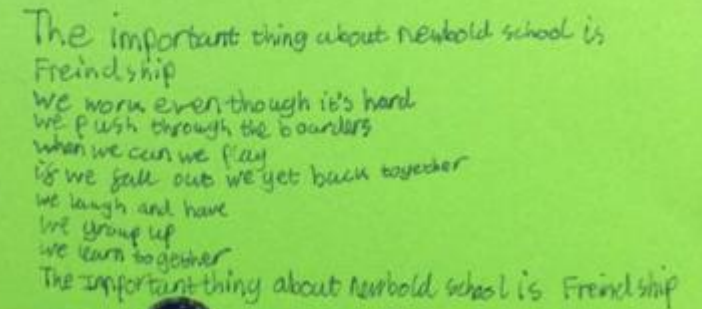 The important thing about Newbold school is
Freindship
we work even though it's hard
we push through the boarders
when we can we play
if we fall out we get back together
we laugh and have
we group up
we learn together
The Important thing about Newbold school is Freindship